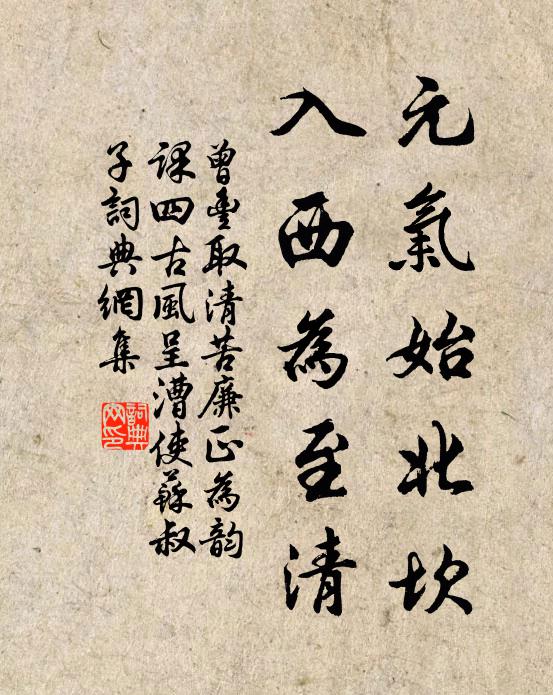 元氣始北坎
入西為至清
曾豊取清苦廉正為韵
課四古風呈漕使蘇叔
子詞典網集
詞典
网印